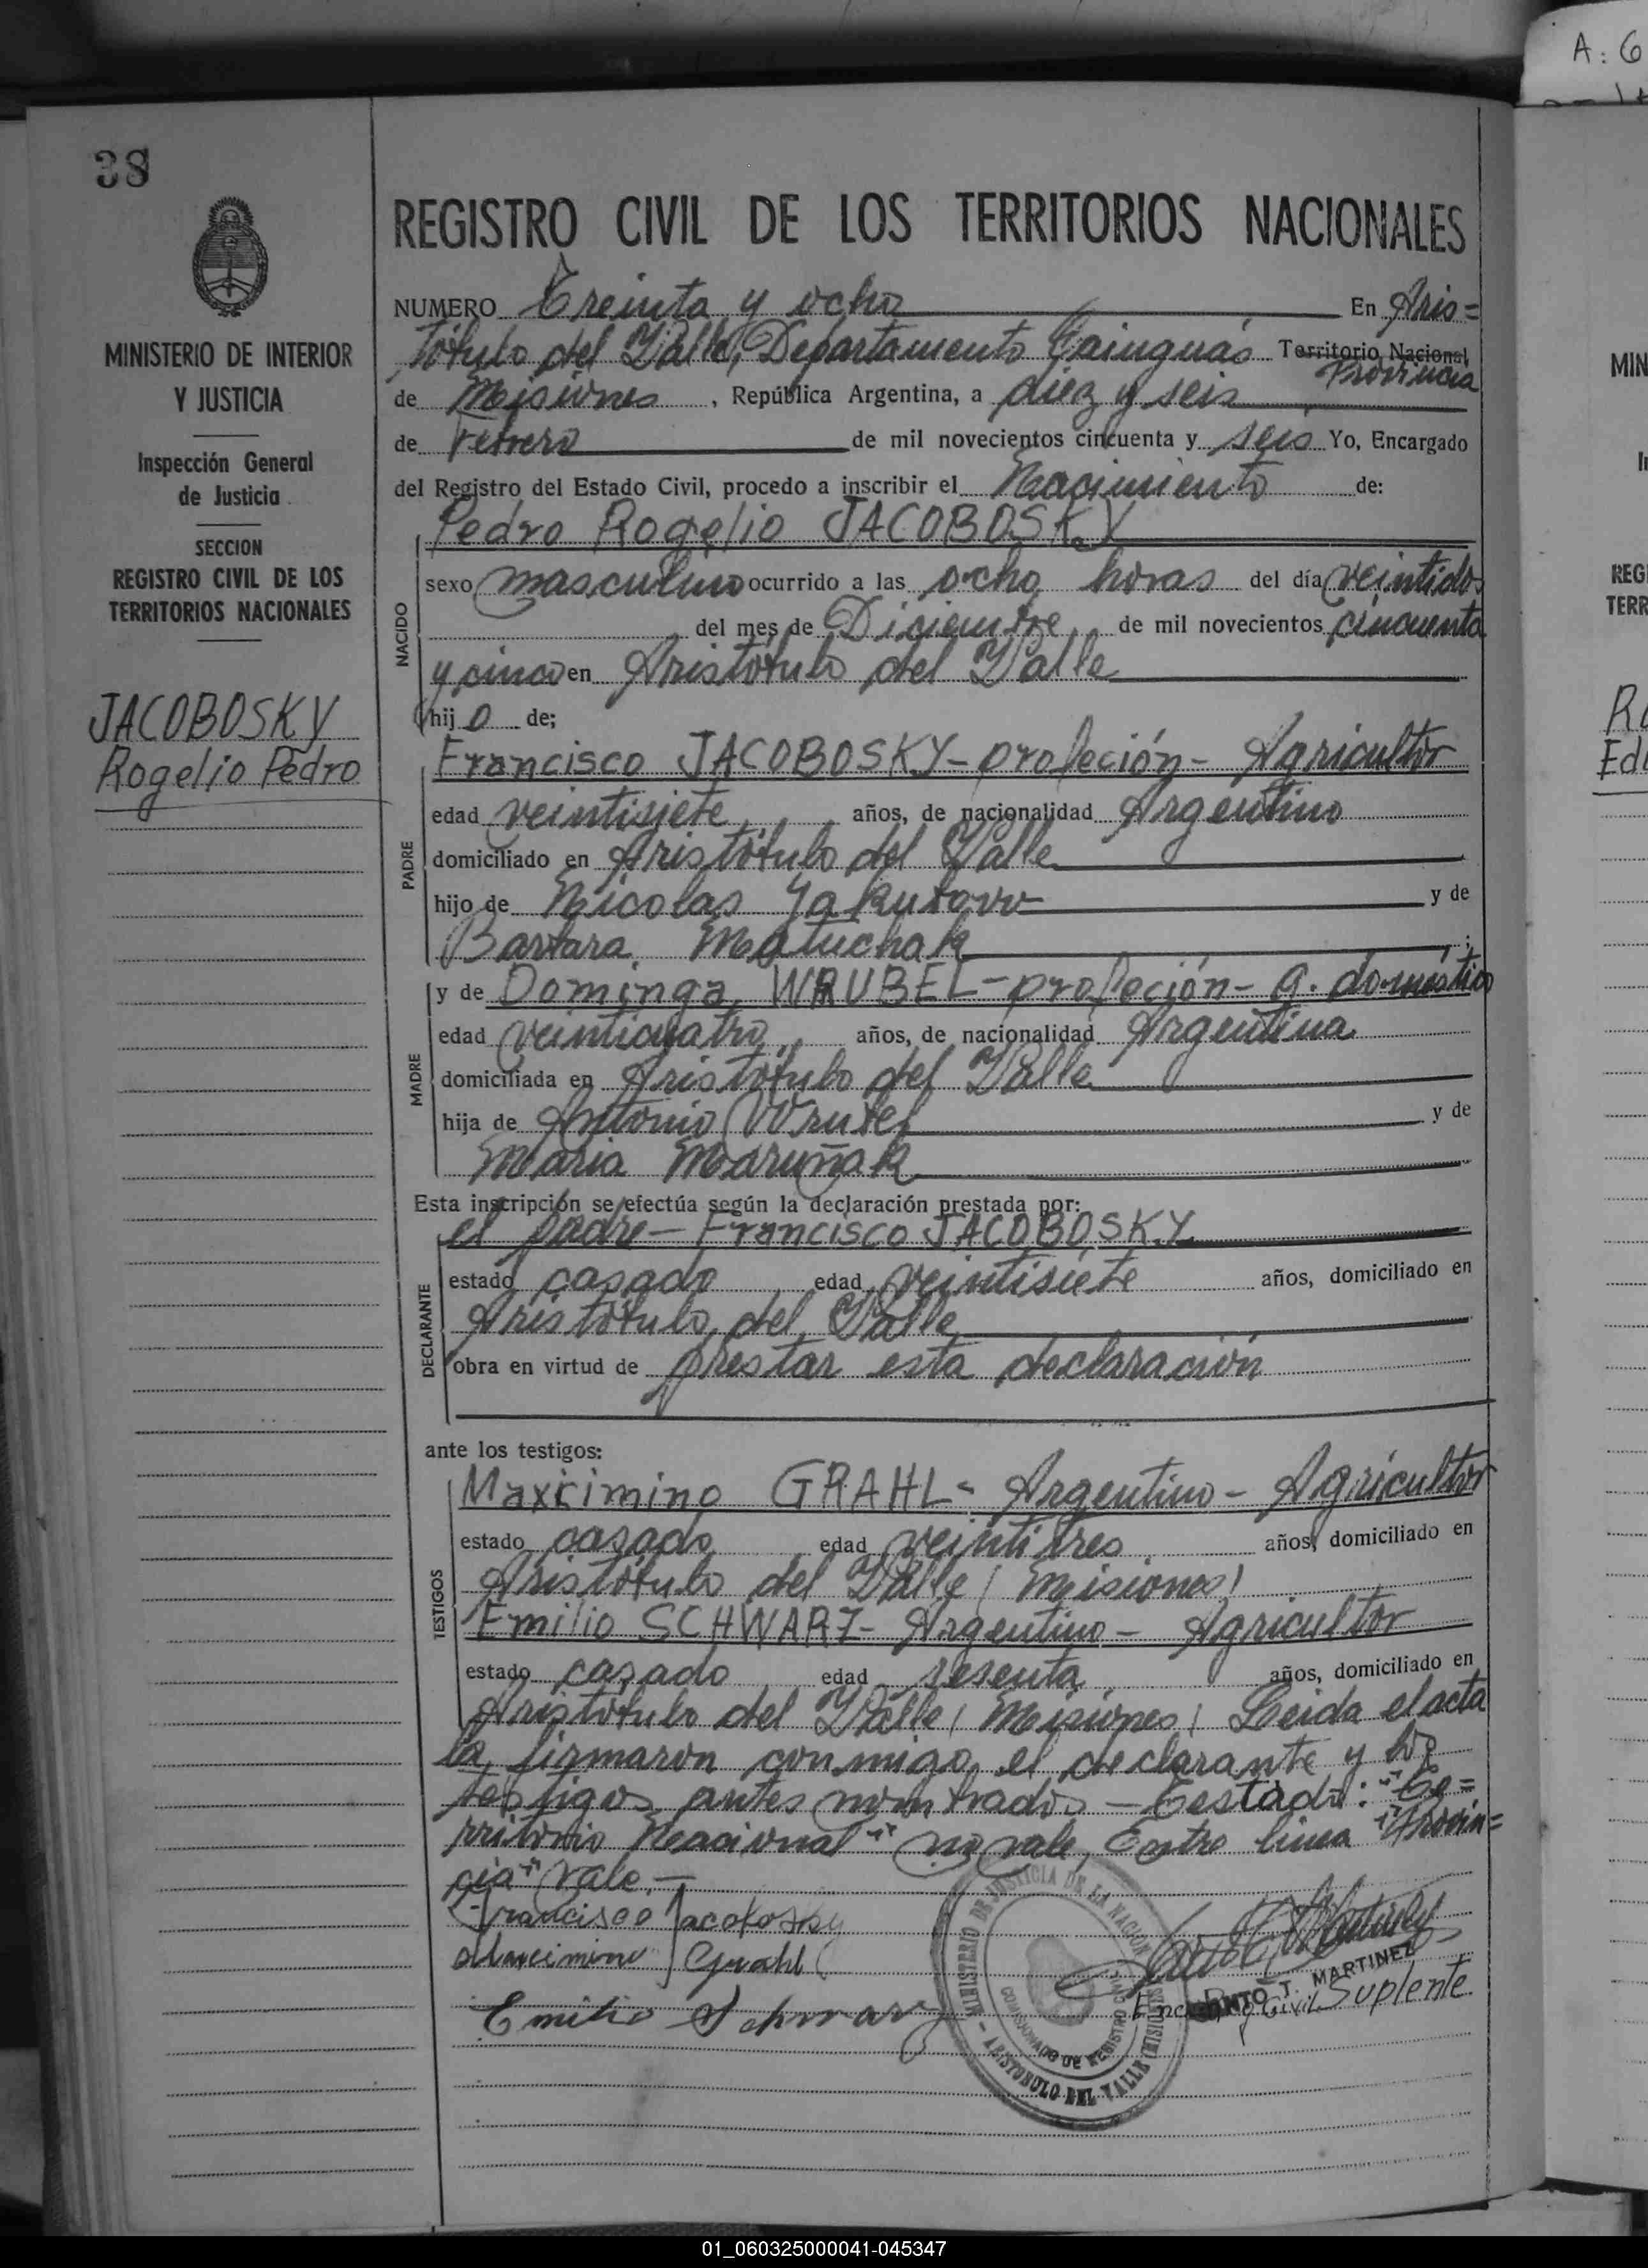 A: 6
38
MINISTERIO DE INTERIOR
Y JUSTICIA
Inspección General
de Justicia
SECCION
REGISTRO CIVIL DE LOS
TERRITORIOS NACIONALES
JACOBOSKY
Rogelio Pedro
REGISTRO CIVIL DE LOS TERRITORIOS NACIONALES
NUMERO Treinta y ocho En Aris=
tóbulo del Valle, Departamento Cainguás Territorio Nacional
Provincia
de Misiones, República Argentina, a diez y seis
de Febrero de mil novecientos cincuenta y seis Yo, Encargado
del Registro del Estado Civil, procedo a inscribir el Nacimiento de:
Pedro Rogelio JACOBOSKY
NACIDO
sexo masculino ocurrido a las ocho horas del día veintidos
del mes de Diciembre de mil novecientos cincuenta
y cinco en Aristóbulo del Valle
hijo de;
PADRE
Francisco JACOBOSKY - profeción - Agricultor
edad veintisiete años, de nacionalidad Argentino
domiciliado en Aristóbulo del Valle
hijo de Nicolas Yakubow y de
Barbara Matuchak;
MADRE
y de Dominga WRUBEL - profeción - q. doméstico
edad veinticuatro años, de nacionalidad Argentina
domiciliada en Aristóbulo del Valle
hija de Antonio Wrubel y de
Maria Maruñak
Esta inscripción se efectúa según la declaración prestada por:
DECLARANTE
el padre - Francisco JACOBOSKY
estado casado edad veintisiete años, domiciliado en
Aristóbulo del Valle
obra en virtud de prestar esta declaración
ante los testigos:
TESTIGOS
Maxicimino GRAHL - Argentino - Agricultor
estado casado edad veintitres años, domiciliado en
Aristóbulo del Valle (Misiones)
Emilio SCHWARZ - Argentino - Agricultor
estado casado edad sesenta años, domiciliado en
Aristóbulo del Valle (Misiones) Leida el acta
la firmaron conmigo el declarante y los
testigos antes nombrados - Testado: "Te=
rritorio Nacional" no vale, Entre linea "Provin=
cia" vale.-
Francisco Jacobosky
Maxcimino Grahl
Emilio Schwarz
MINISTERIO DE JUSTICIA DE LA NACION
ARISTOBULO DEL VALLE (MISIONES)
T. MARTINEZ
Enc. Reg Civil Suplente
MIN
REG
TERR
01_060325000041-045347